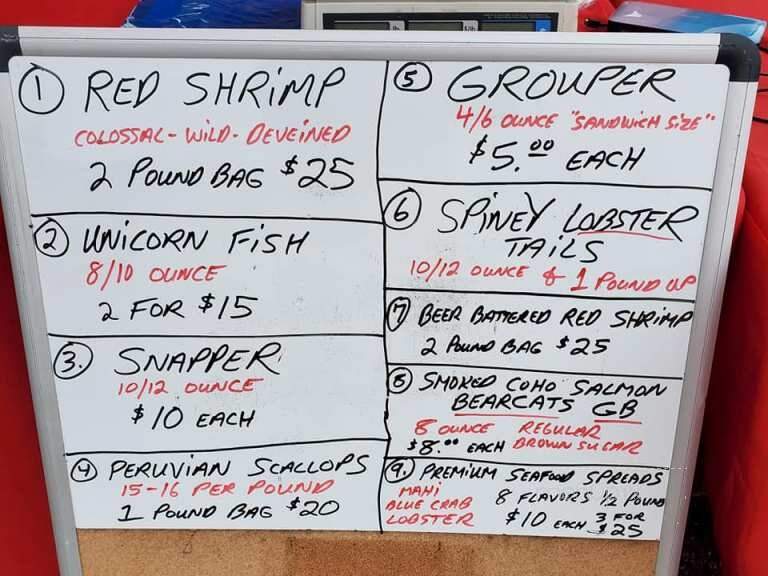 1 RED SHRIMP
COLOSSAL - WILD - DEVEINED
2 POUND BAG $25
2 UNICORN FISH
8/10 OUNCE
2 FOR $15
3. SNAPPER
10/12 OUNCE
$10 EACH
4 PERUVIAN SCALLOPS
15-16 PER POUND
1 POUND BAG $20
5 GROUPER
4/6 OUNCE "SANDWICH SIZE"
$5.00 EACH
6 SPINEY LOBSTER
TAILS
10/12 OUNCE & 1 POUND UP
7 BEER BATTERED RED SHRIMP
2 POUND BAG $25
8 SMOKED COHO SALMON
BEARCATS GB
8 OUNCE REGULAR
$8.00 EACH BROWN SUGAR
9. PREMIUM SEAFOOD SPREADS
MAHI 8 FLAVORS 1/2 POUND
BLUE CRAB
LOBSTER $10 EACH 3 FOR $25